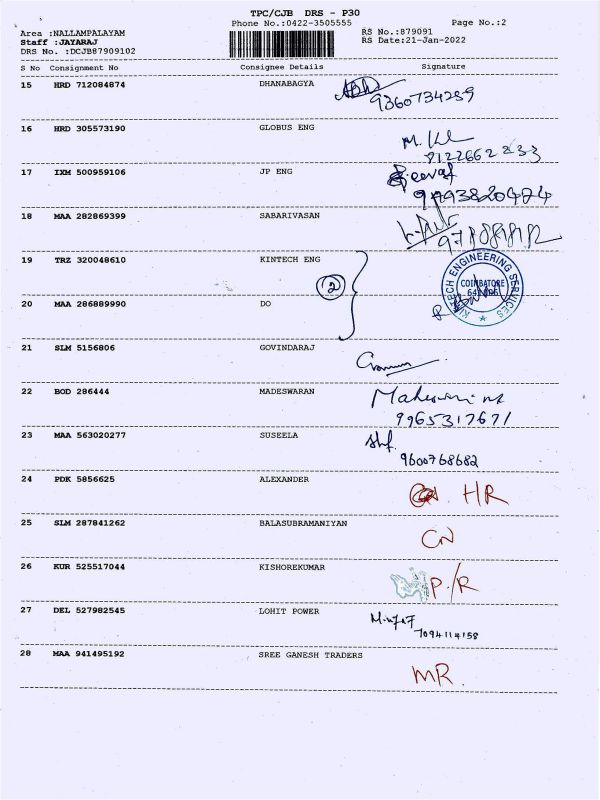 TPC/CJB DRS - P30
Phone No.:0422-3505555
Page No.:2
Area :NALLAMPALAYAM
Staff :JAYARAJ
DRS No. :DCJB87909102
RS No.:879091
RS Date:21-Jan-2022
S No Consignment No Consignee Details Signature
15 HRD 712084874 DHANABAGYA
9360734259
16 HRD 305573190 GLOBUS ENG
M. Kl
8122662233
17 IXM 500959106 JP ENG
18 MAA 282869399 SABARIVASAN
19 TRZ 320048610 KINTECH ENG
KINTECH ENGINEERING SERVICES
COIMBATORE
2
20 MAA 286889990 DO
21 SLM 5156806 GOVINDARAJ
22 BOD 286444 MADESWARAN
9965317671
23 MAA 563020277 SUSEELA
9600768682
24 PDK 5856625 ALEXANDER
HR
25 SLM 287841262 BALASUBRAMANIYAN
CN
26 KUR 525517044 KISHOREKUMAR
P./R
27 DEL 527982545 LOHIT POWER
7094114158
28 MAA 941495192 SREE GANESH TRADERS
MR.